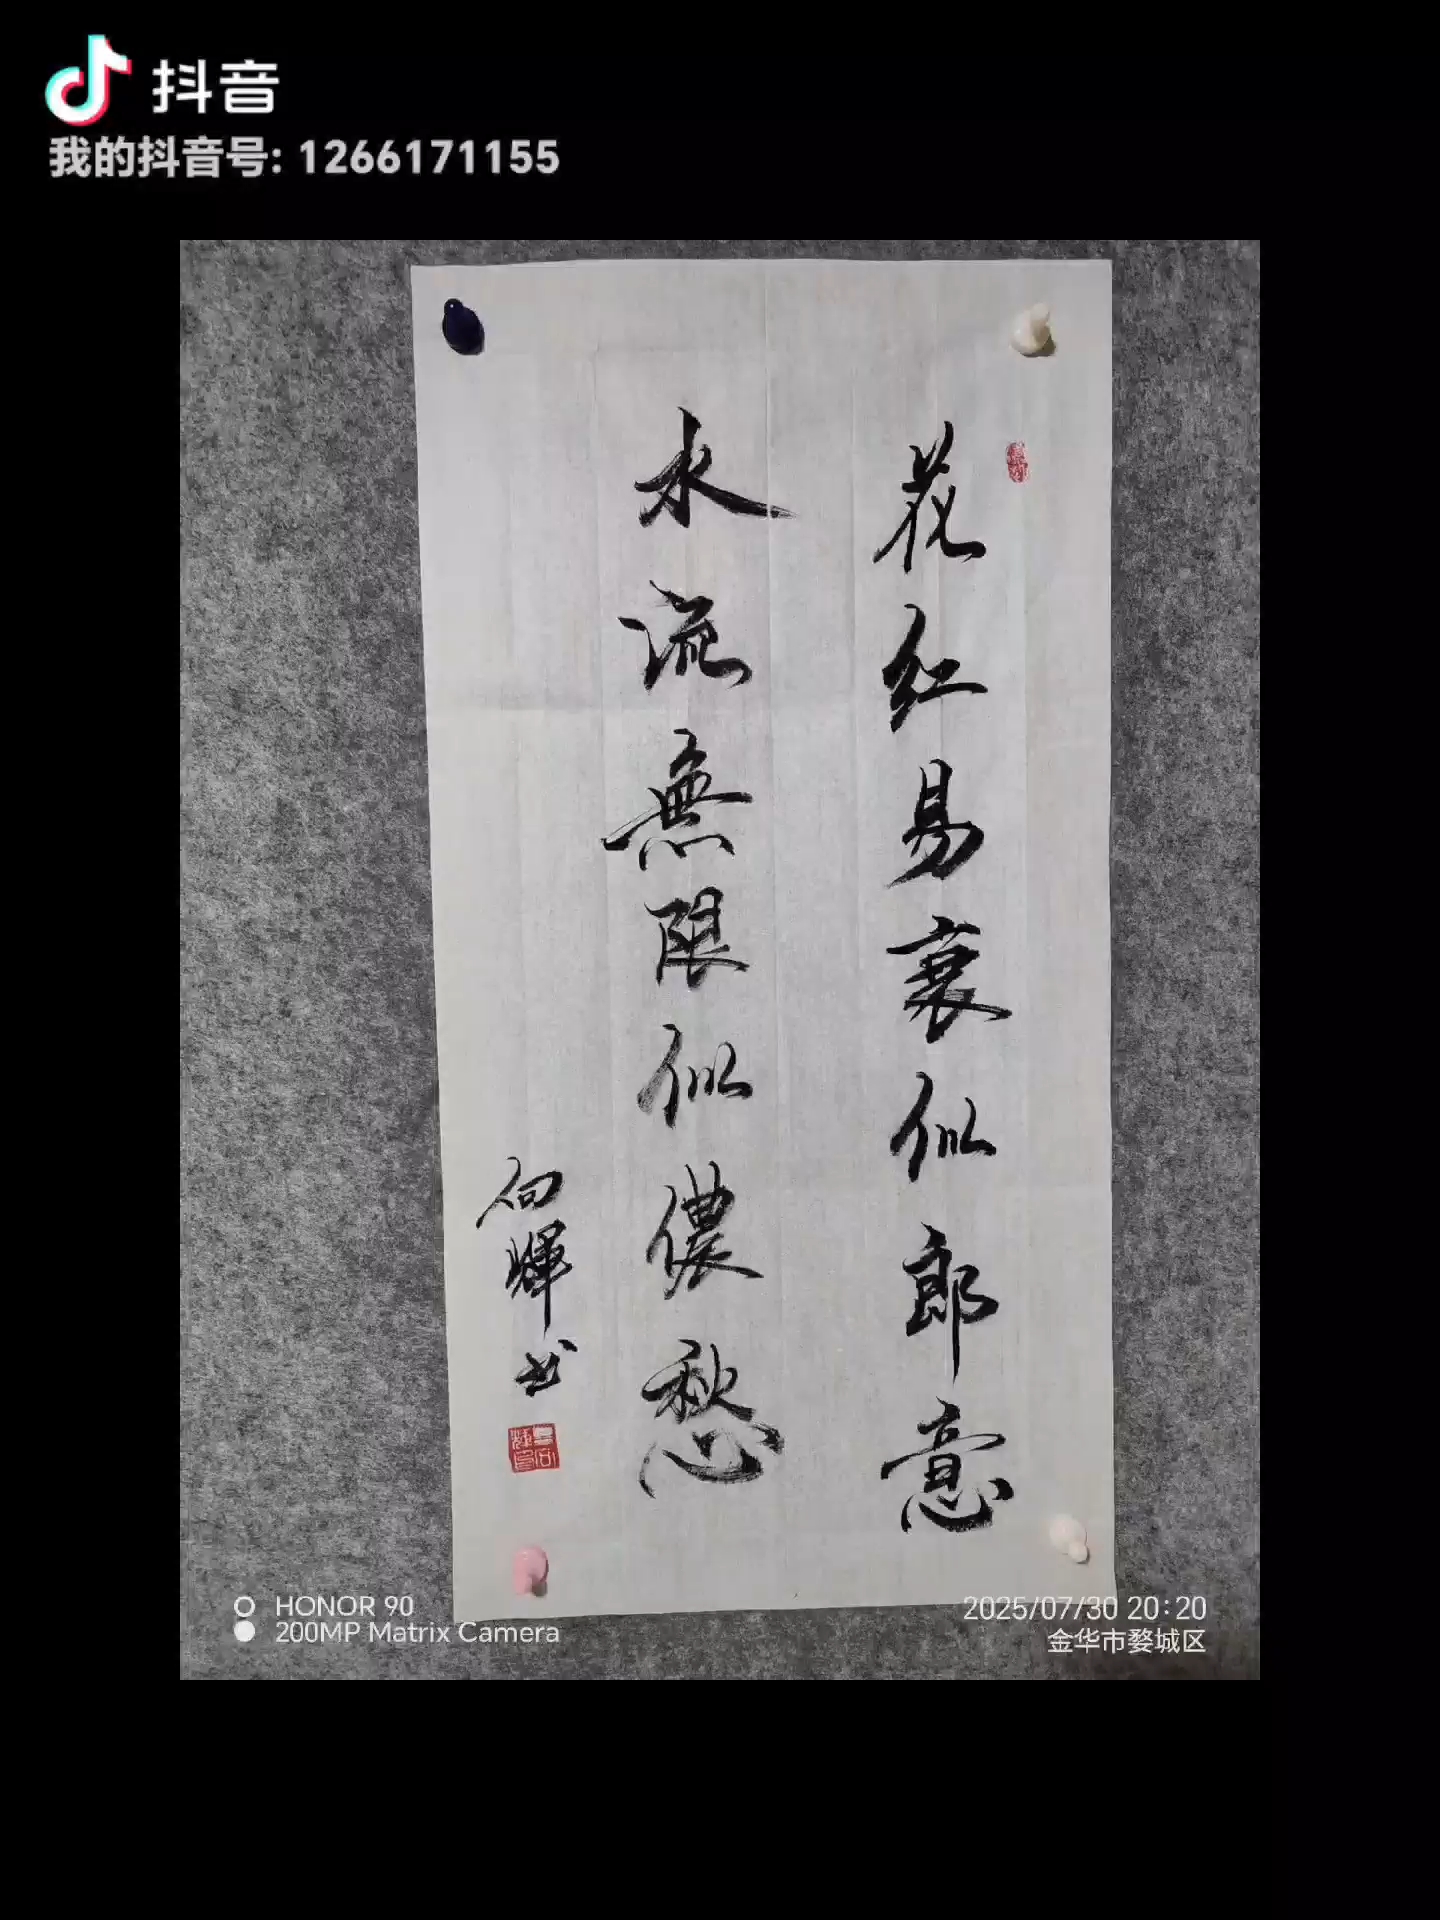 抖音
我的抖音号: 1266171155
花红易衰似郎意
水流無限似儂愁
向輝书
HONOR 90
200MP Matrix Camera
2025/07/30 20:20
金华市婺城区